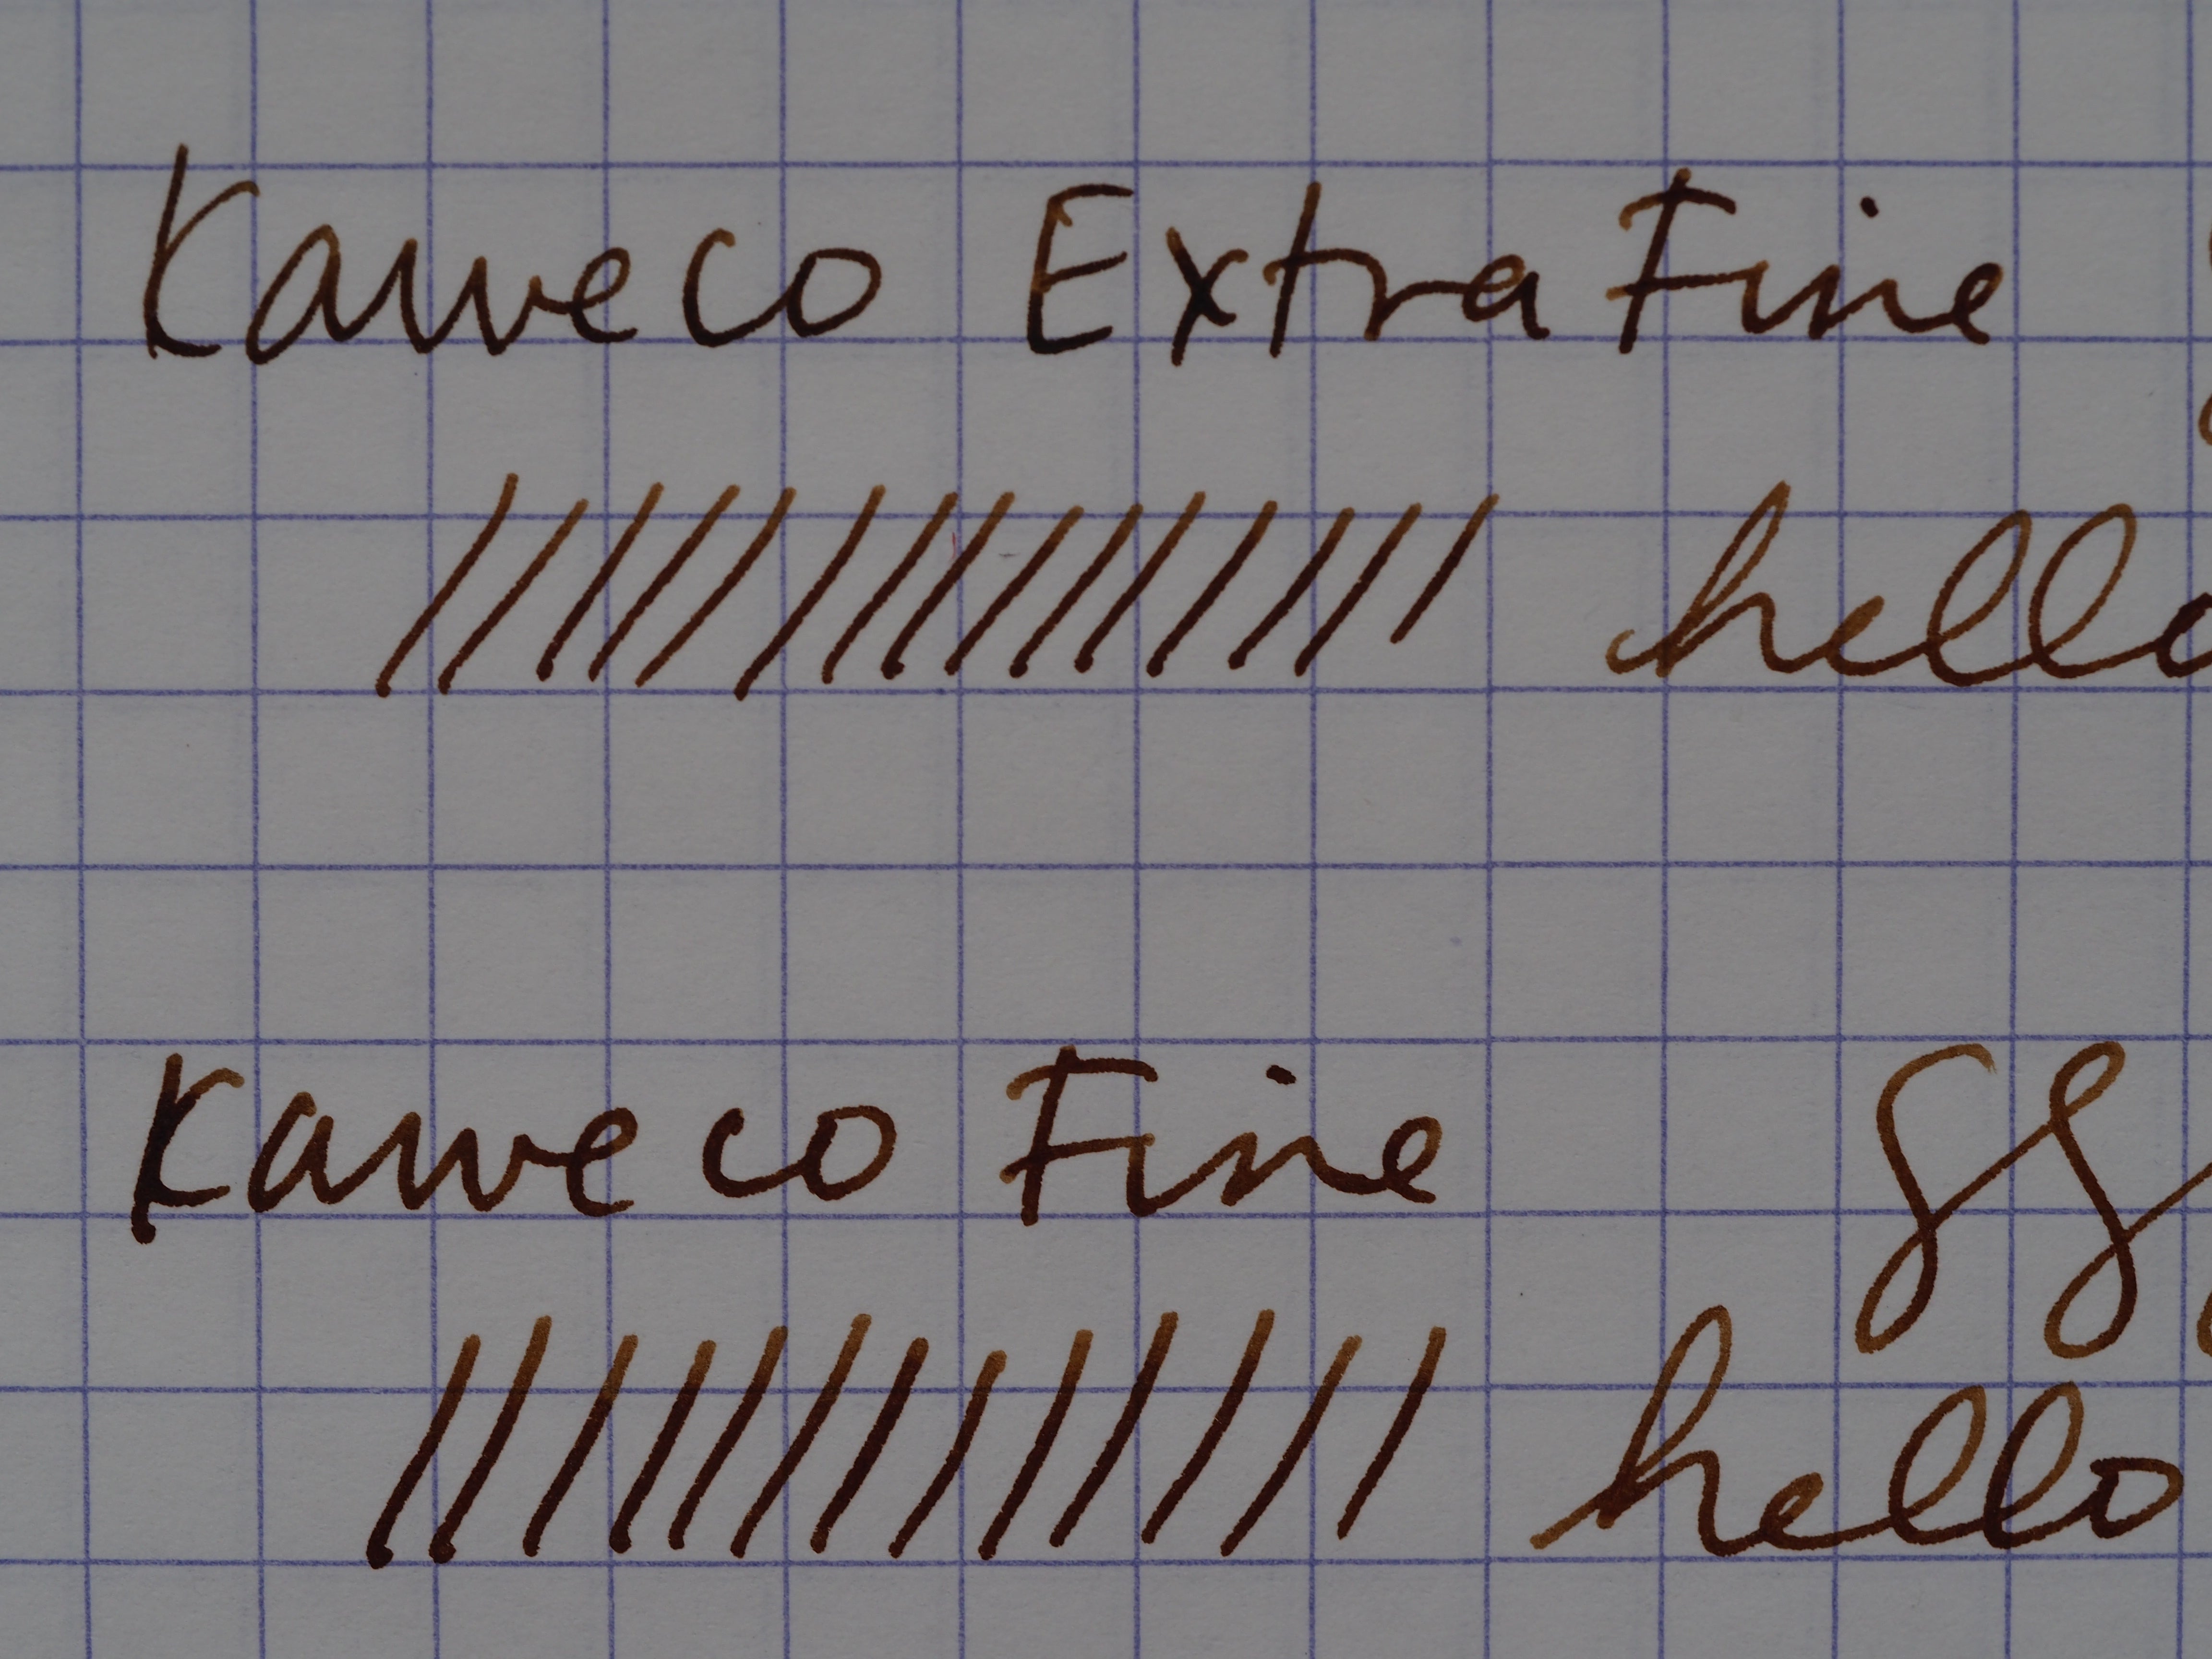 Kaweco Extra Fine
hello
Kaweco Fine
gg
hello